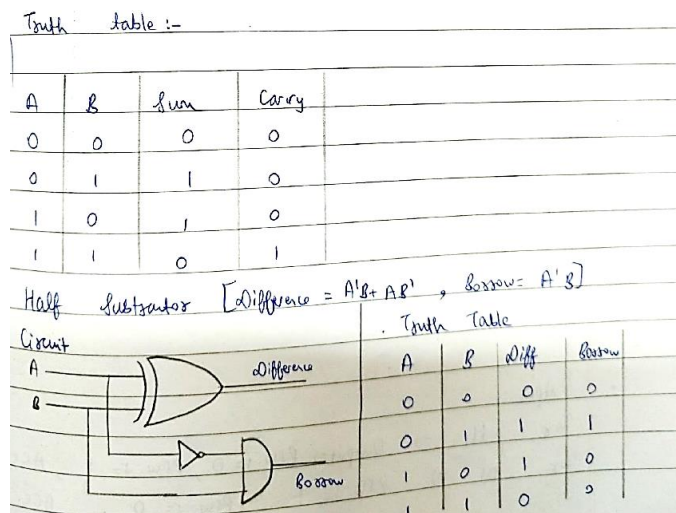 Truth table :-
A B Sum Carry
0 0 0 0
0 1 1 0
1 0 1 0
1 1 0 1
Half Subtractor [Difference = A'B + AB' , Borrow = A'B]
Circuit
A
B
Difference
Borrow
Truth Table
A B Diff Borrow
0 0 0 0
0 1 1 1
1 0 1 0
1 1 0 0